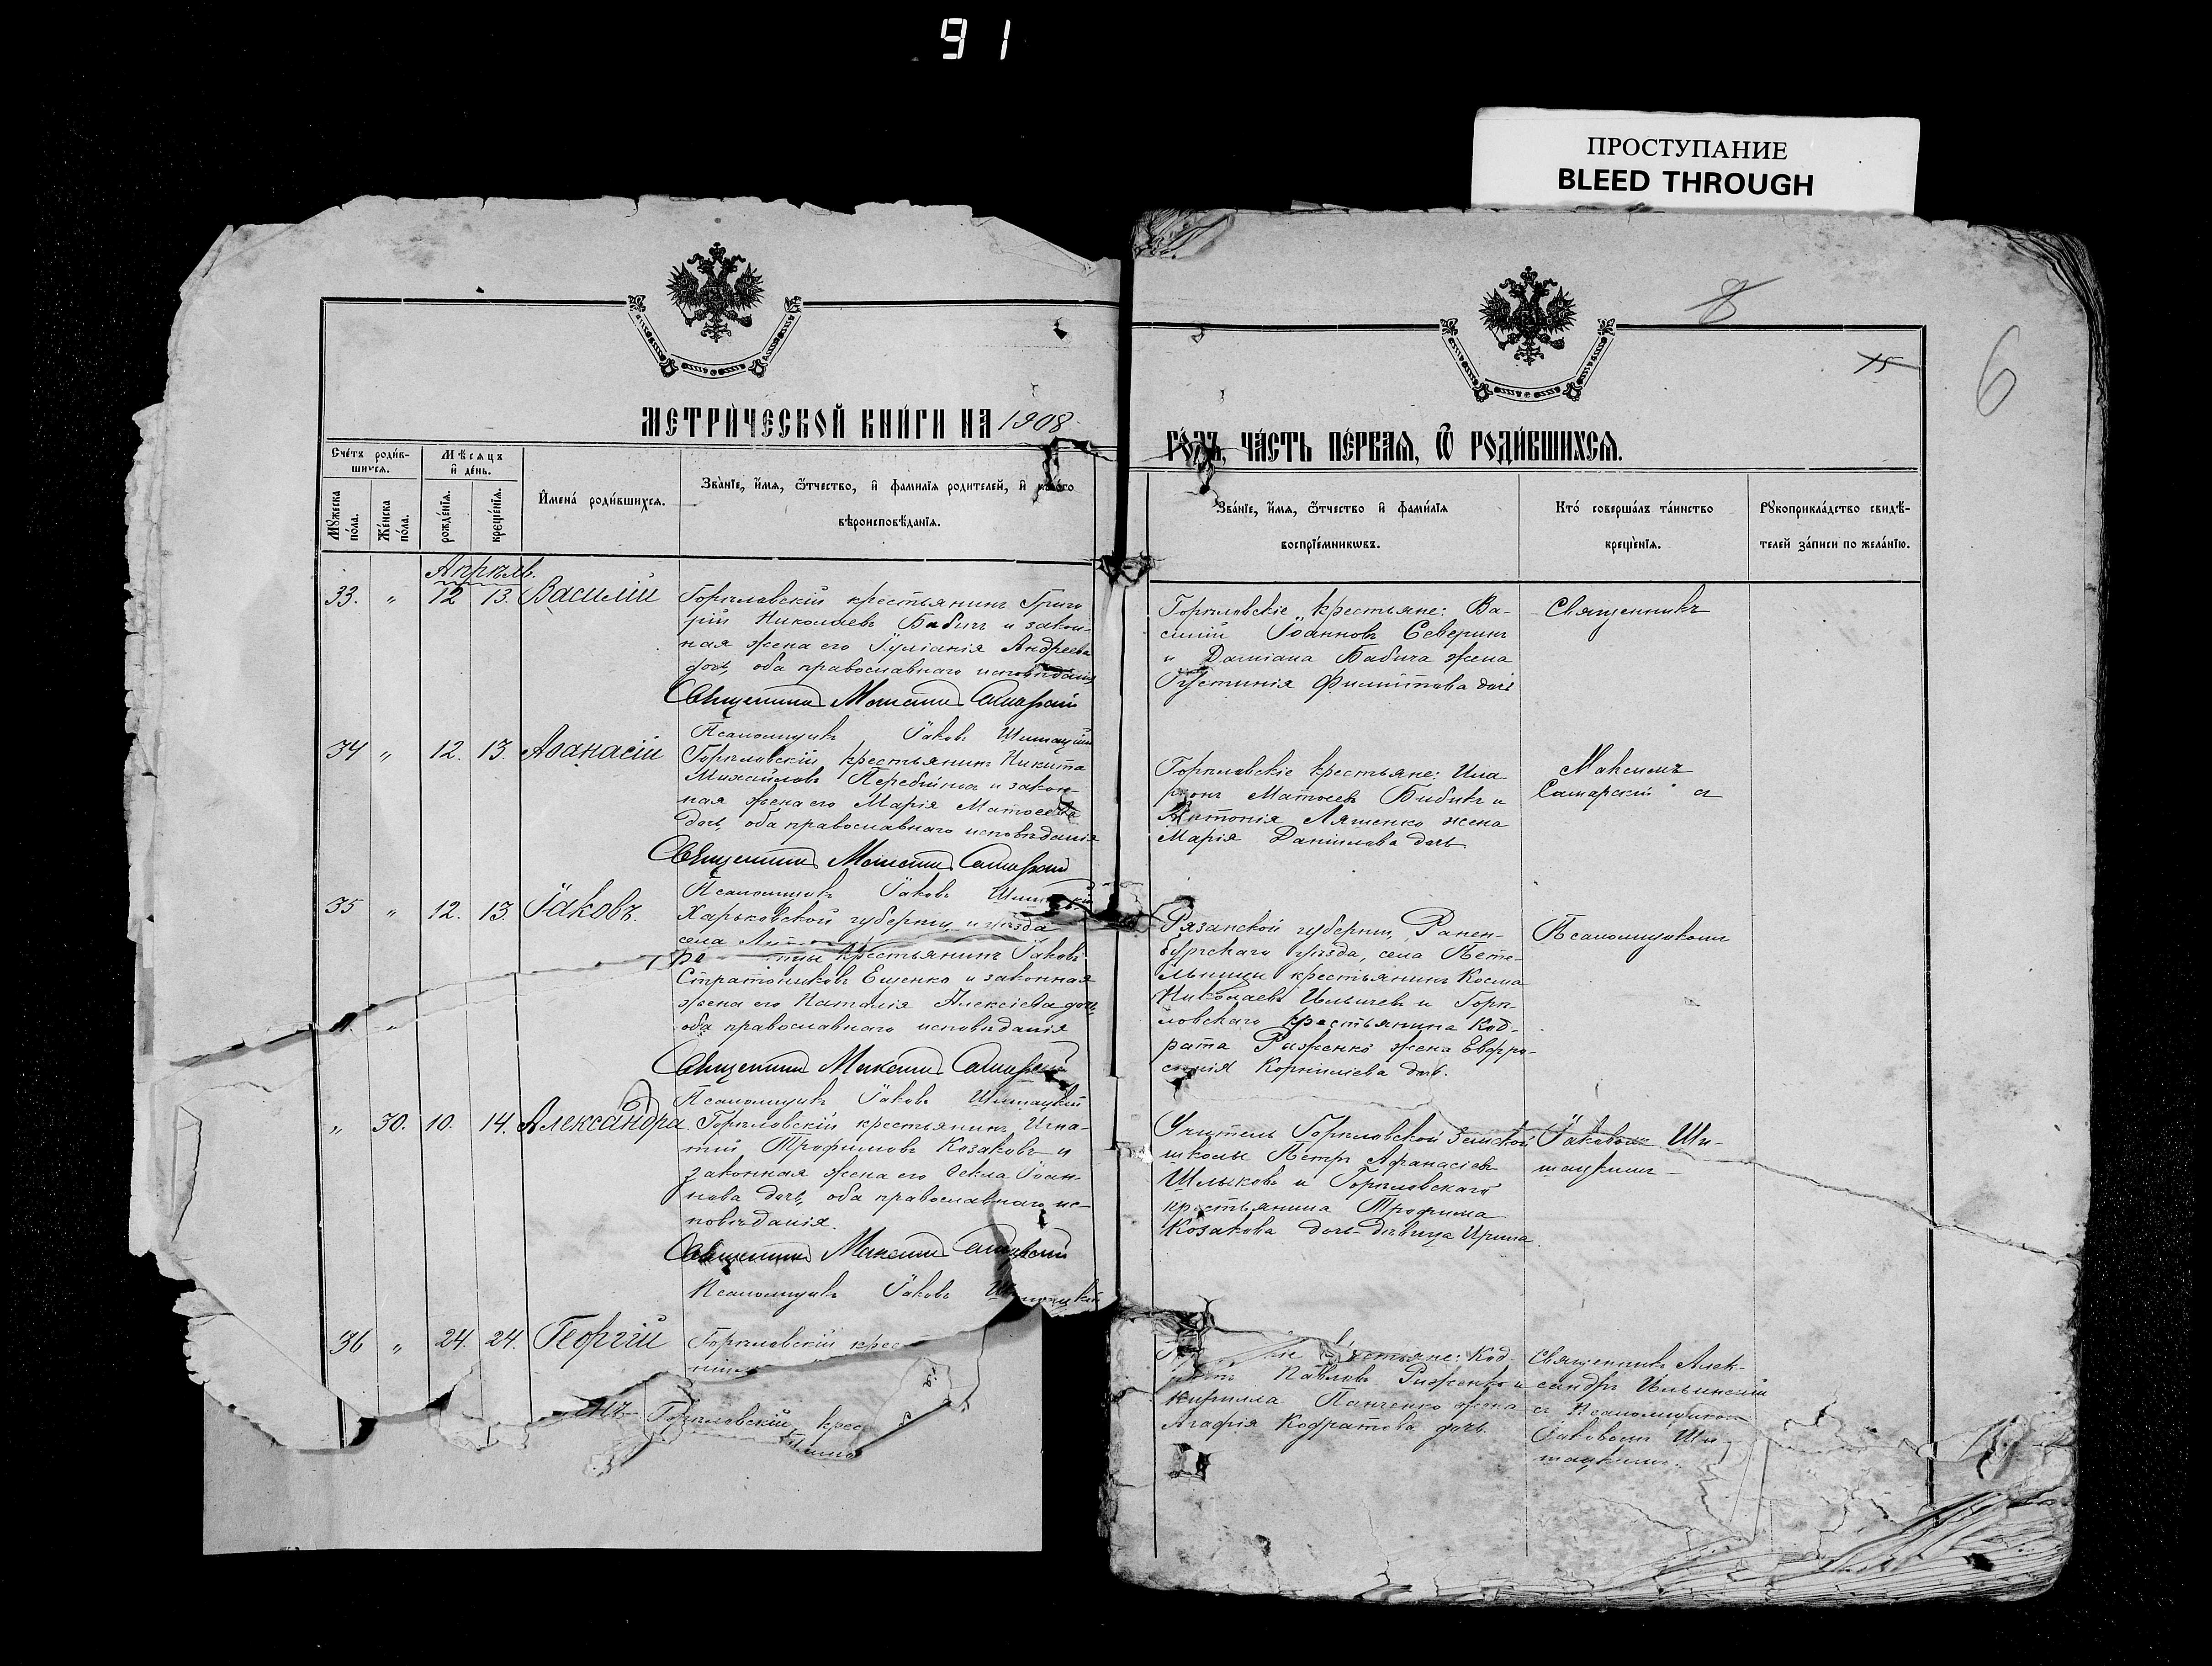 91
ПРОСТУПАНИЕ
BLEED THROUGH
8
15
6
МЕТРИ́ЧЕСКОЙ КНИ́ГИ НА 1908
ГО́ДЪ, ЧА́СТЬ ПЕ́РВАѦ, Ѿ РОДИ́ВШИХСѦ.
Сче́тъ роди́в-
шихся.
Мѣсяцъ
и҆ де́нь.
Мꙋ́жеска
по́ла.
Же́нска
по́ла.
рожде́нїя.
креще́нїя.
И҆мена́ роди́вшихся.
Зва́нїе, и҆́мя, ѻ҆́тчество, и҆ фами́лїя родителей, и҆ како́го
вѣроисповѣ́данїя.
Зва́нїе, и҆́мя, ѻ҆́тчество и҆ фами́лїя
воспрїе́мникѡвъ.
Кто́ соверша́лъ та́инство
креще́нїя.
Рꙋкоприкла́дство свидѣ́-
телей за́писи по жела́нїю.
Апрѣль.
33. " 12 13. Василій
Горѣловскій крестьянинъ Григо
рій Николаевъ Бабичъ и закон-
ная жена его Іуліанія Андреева
дочь, оба православнаго исповѣданія
Священникъ Максимъ Самарскій
Псаломщикъ Іаковъ Шишацкій
Горѣловскіе крестьяне: Ва-
силій Іоанновъ Северинъ
и Даміана Бабича жена
Іустинія Филиппова дочь
Священникъ
34 " 12. 13. Аѳанасій
Горѣловскій крестьянинъ Никита
Михайловъ и закон-
ная жена его Марія Матѳеева
дочь, оба православнаго исповѣданія
Священникъ Максимъ Самарскій
Псаломщикъ Іаковъ Шишацкій
Горѣловскіе крестьяне: Ила
ріонъ Матѳеевъ Бибикъ и
Антонія Ляшенко жена
Марія Даніилова дочь
Максимъ
Самарскій съ
35 " 12. 13. Іаковъ.
Харьковской губерніи и уѣзда
села
крестьянинъ Іаковъ
Стратониковъ Ещенко и законная
жена его Наталія Алексіева дочь,
оба православнаго исповѣданія
Священникъ Максимъ Самарскій
Псаломщикъ Іаковъ Шишацкій
Рязанской губерніи, Ранен-
бургскаго уѣзда, села
крестьянинъ Косма
Николаевъ и Горѣ-
ловскаго крестьянина Код-
рата Рыженко жена Евфро-
синія Корниліева дочь.
Псаломщикомъ
" 30. 10. 14. Александра
Горѣловскій крестьянинъ Игна-
тій Трофимовъ Козаковъ и
законная жена его Ѳекла Іоан-
нова дочь, оба православнаго ис-
повѣданія.
Священникъ Максимъ Самарскій
Псаломщикъ Іаковъ Шишацкій
Учитель Горѣловской Земской
школы Петръ Афанасіевъ
Шлыковъ и Горѣловскаго
крестьянина Трофима
Козакова дочь-дѣвица Ирина.
Іаковомъ Ши-
шацкимъ
36 " 24. 24. Георгій
Горѣловскій крес
Горѣловскій крес
крестьяне: Код-
ратъ Павловъ Рыженко и
Кирилла Панченко жена
Агафія Кодратова дочь.
Священникъ Алек-
сандръ Ильинскій
съ Псаломщикомъ
Іаковомъ Ши-
шацкимъ.